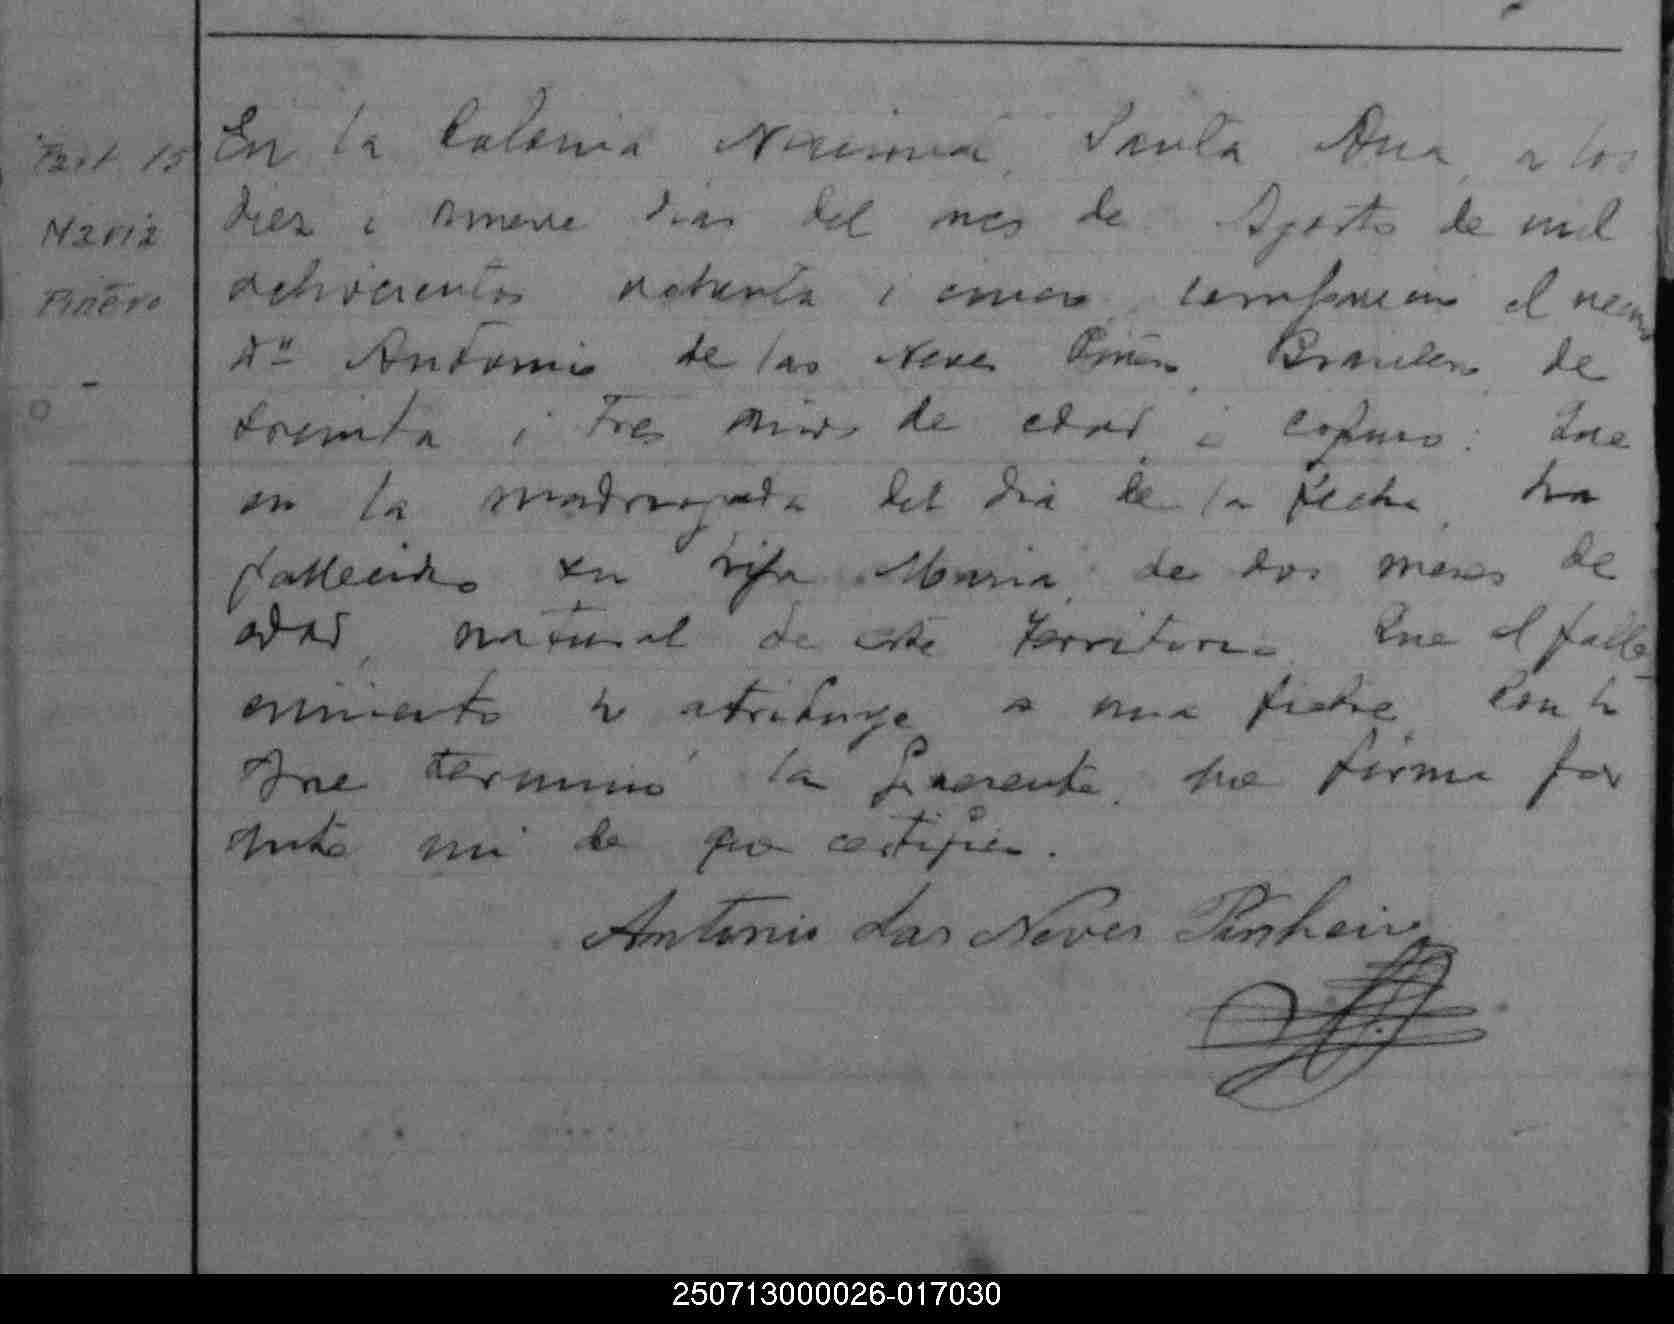 Part 15
Maria
Piñero
En la Colonia Nacional Santa Ana, a los
diez i nueve dias del mes de Agosto de mil
ochocientos ochenta i cinco, comparecio el vecino
Dn Antonio de las Neves Piñero, Brasilero, de
treinta i tres años de edad, i espuso: Que
en la madrugada del dia de la fecha, ha
fallecido su hija Maria, de dos meses de
edad, natural de este Territorio. Que el falle-
cimiento lo atribuye a una fiebre. Con lo
que terminó la presente, que firma por
ante mi de que certifico.
Antonio das Neves Pinheiro
250713000026-017030